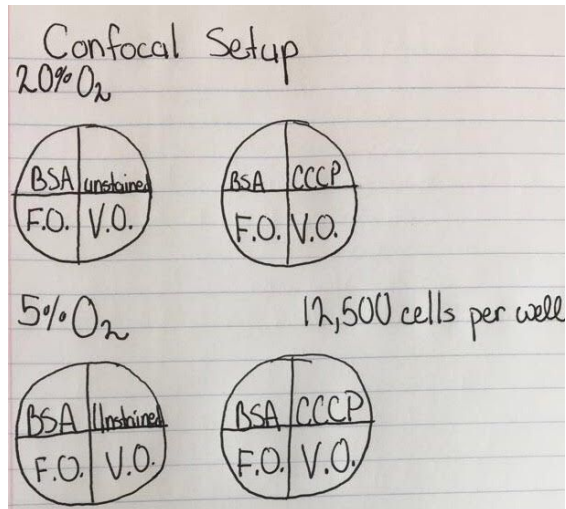 Confocal Setup
20% O₂
BSA unstained BSA CCCP
F.O. V.O. F.O. V.O.
5% O₂ 12,500 cells per well
BSA Unstained BSA CCCP
F.O. V.O. F.O. V.O.